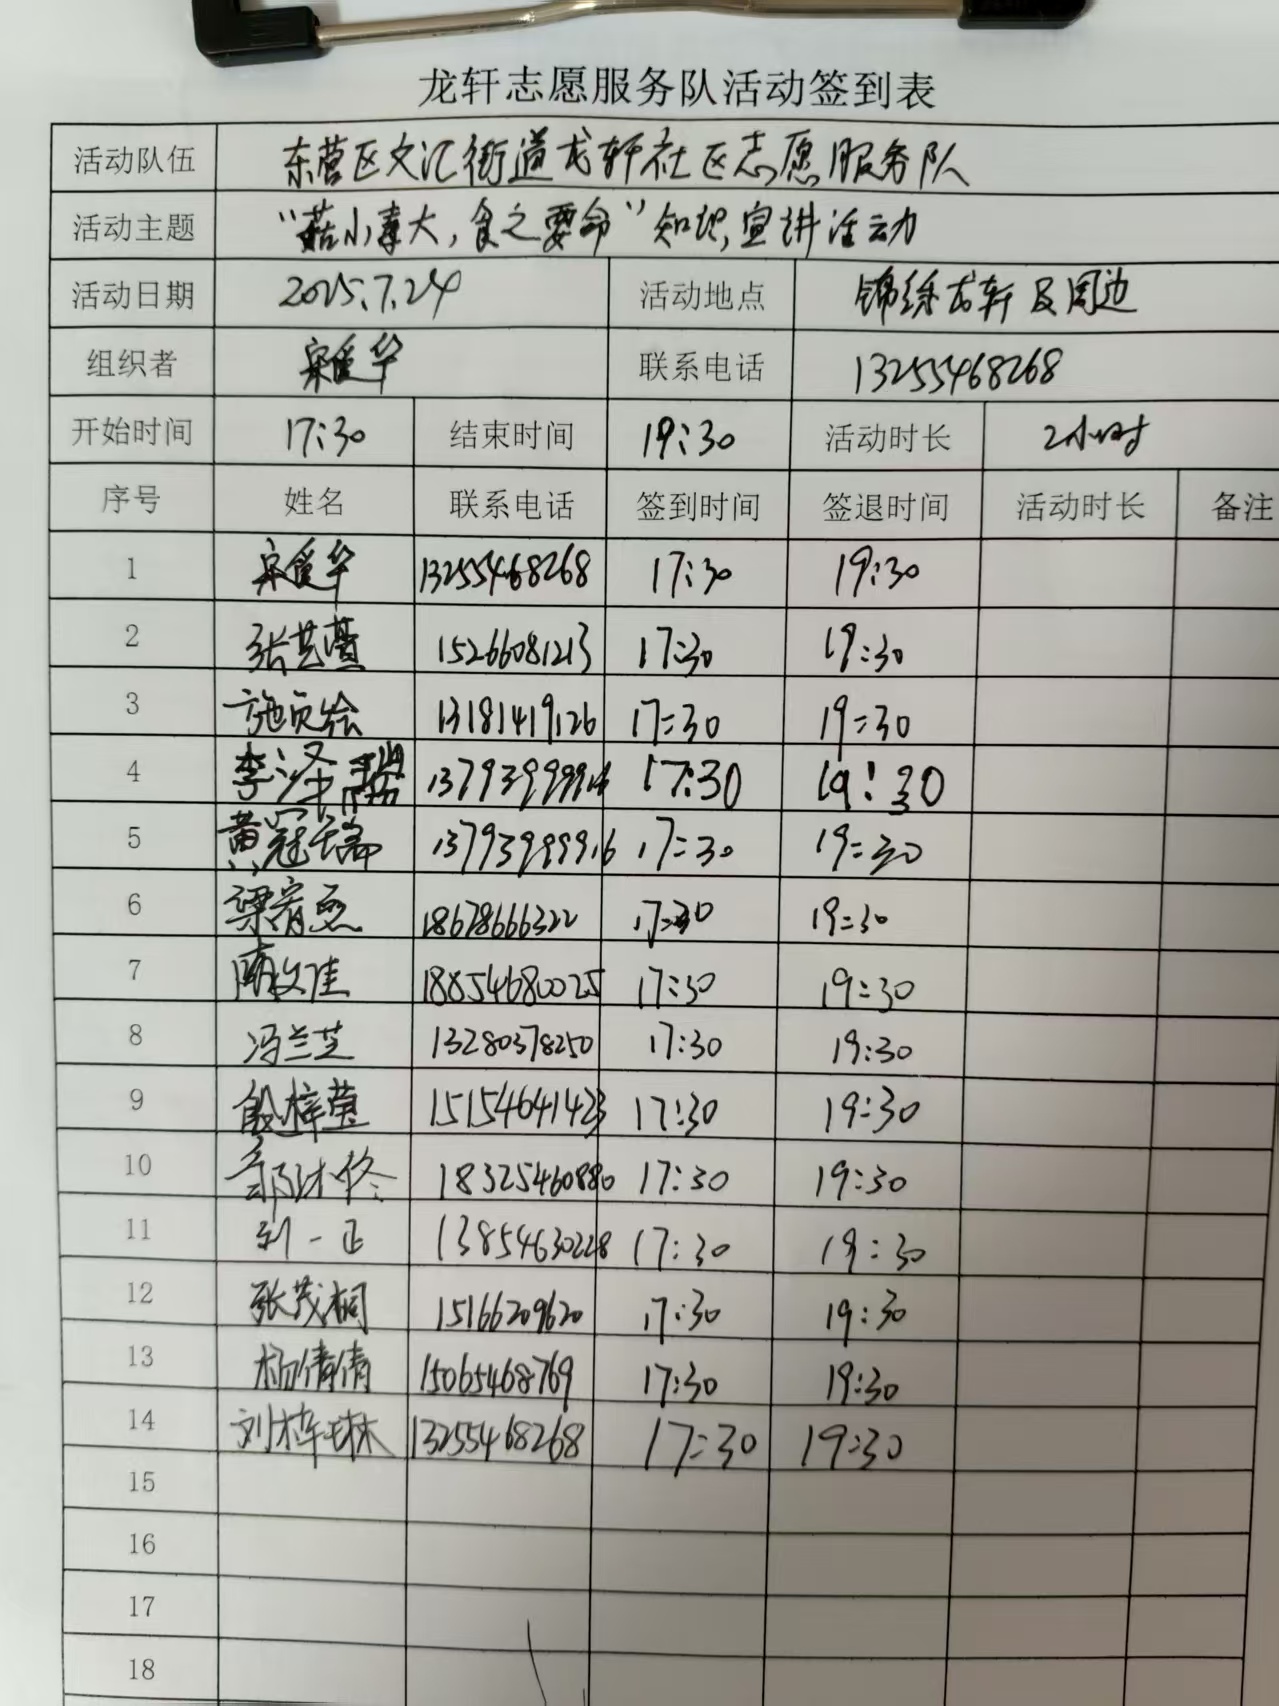 龙轩志愿服务队活动签到表
活动队伍 东营区文汇街道龙轩社区志愿服务队
活动主题 “菇小毒大，食之要命”知识宣讲活动
活动日期 2025.7.24 活动地点 锦绣龙轩及周边
组织者 宋爱华 联系电话 13255468268
开始时间 17:30 结束时间 19:30 活动时长 2小时
序号 姓名 联系电话 签到时间 签退时间 活动时长 备注
1 宋爱华 13255468268 17:30 19:30
2 15266081213 17:30 19:30
3 13181419126 17:30 19:30
4 李泽 17:30 19:30
5 黄冠瑞 17:30 19:30
6 梁 18678666322 17:30 19:30
7 隋文佳 18854680025 17:30 19:30
8 冯兰芝 13280378250 17:30 19:30
9 梓莹 15154641423 17:30 19:30
10 18325460880 17:30 19:30
11 刘一正 13854630228 17:30 19:30
12 张茂桐 15166209620 17:30 19:30
13 杨倩倩 15065468769 17:30 19:30
14 刘梓琳 13255468268 17:30 19:30
15
16
17
18